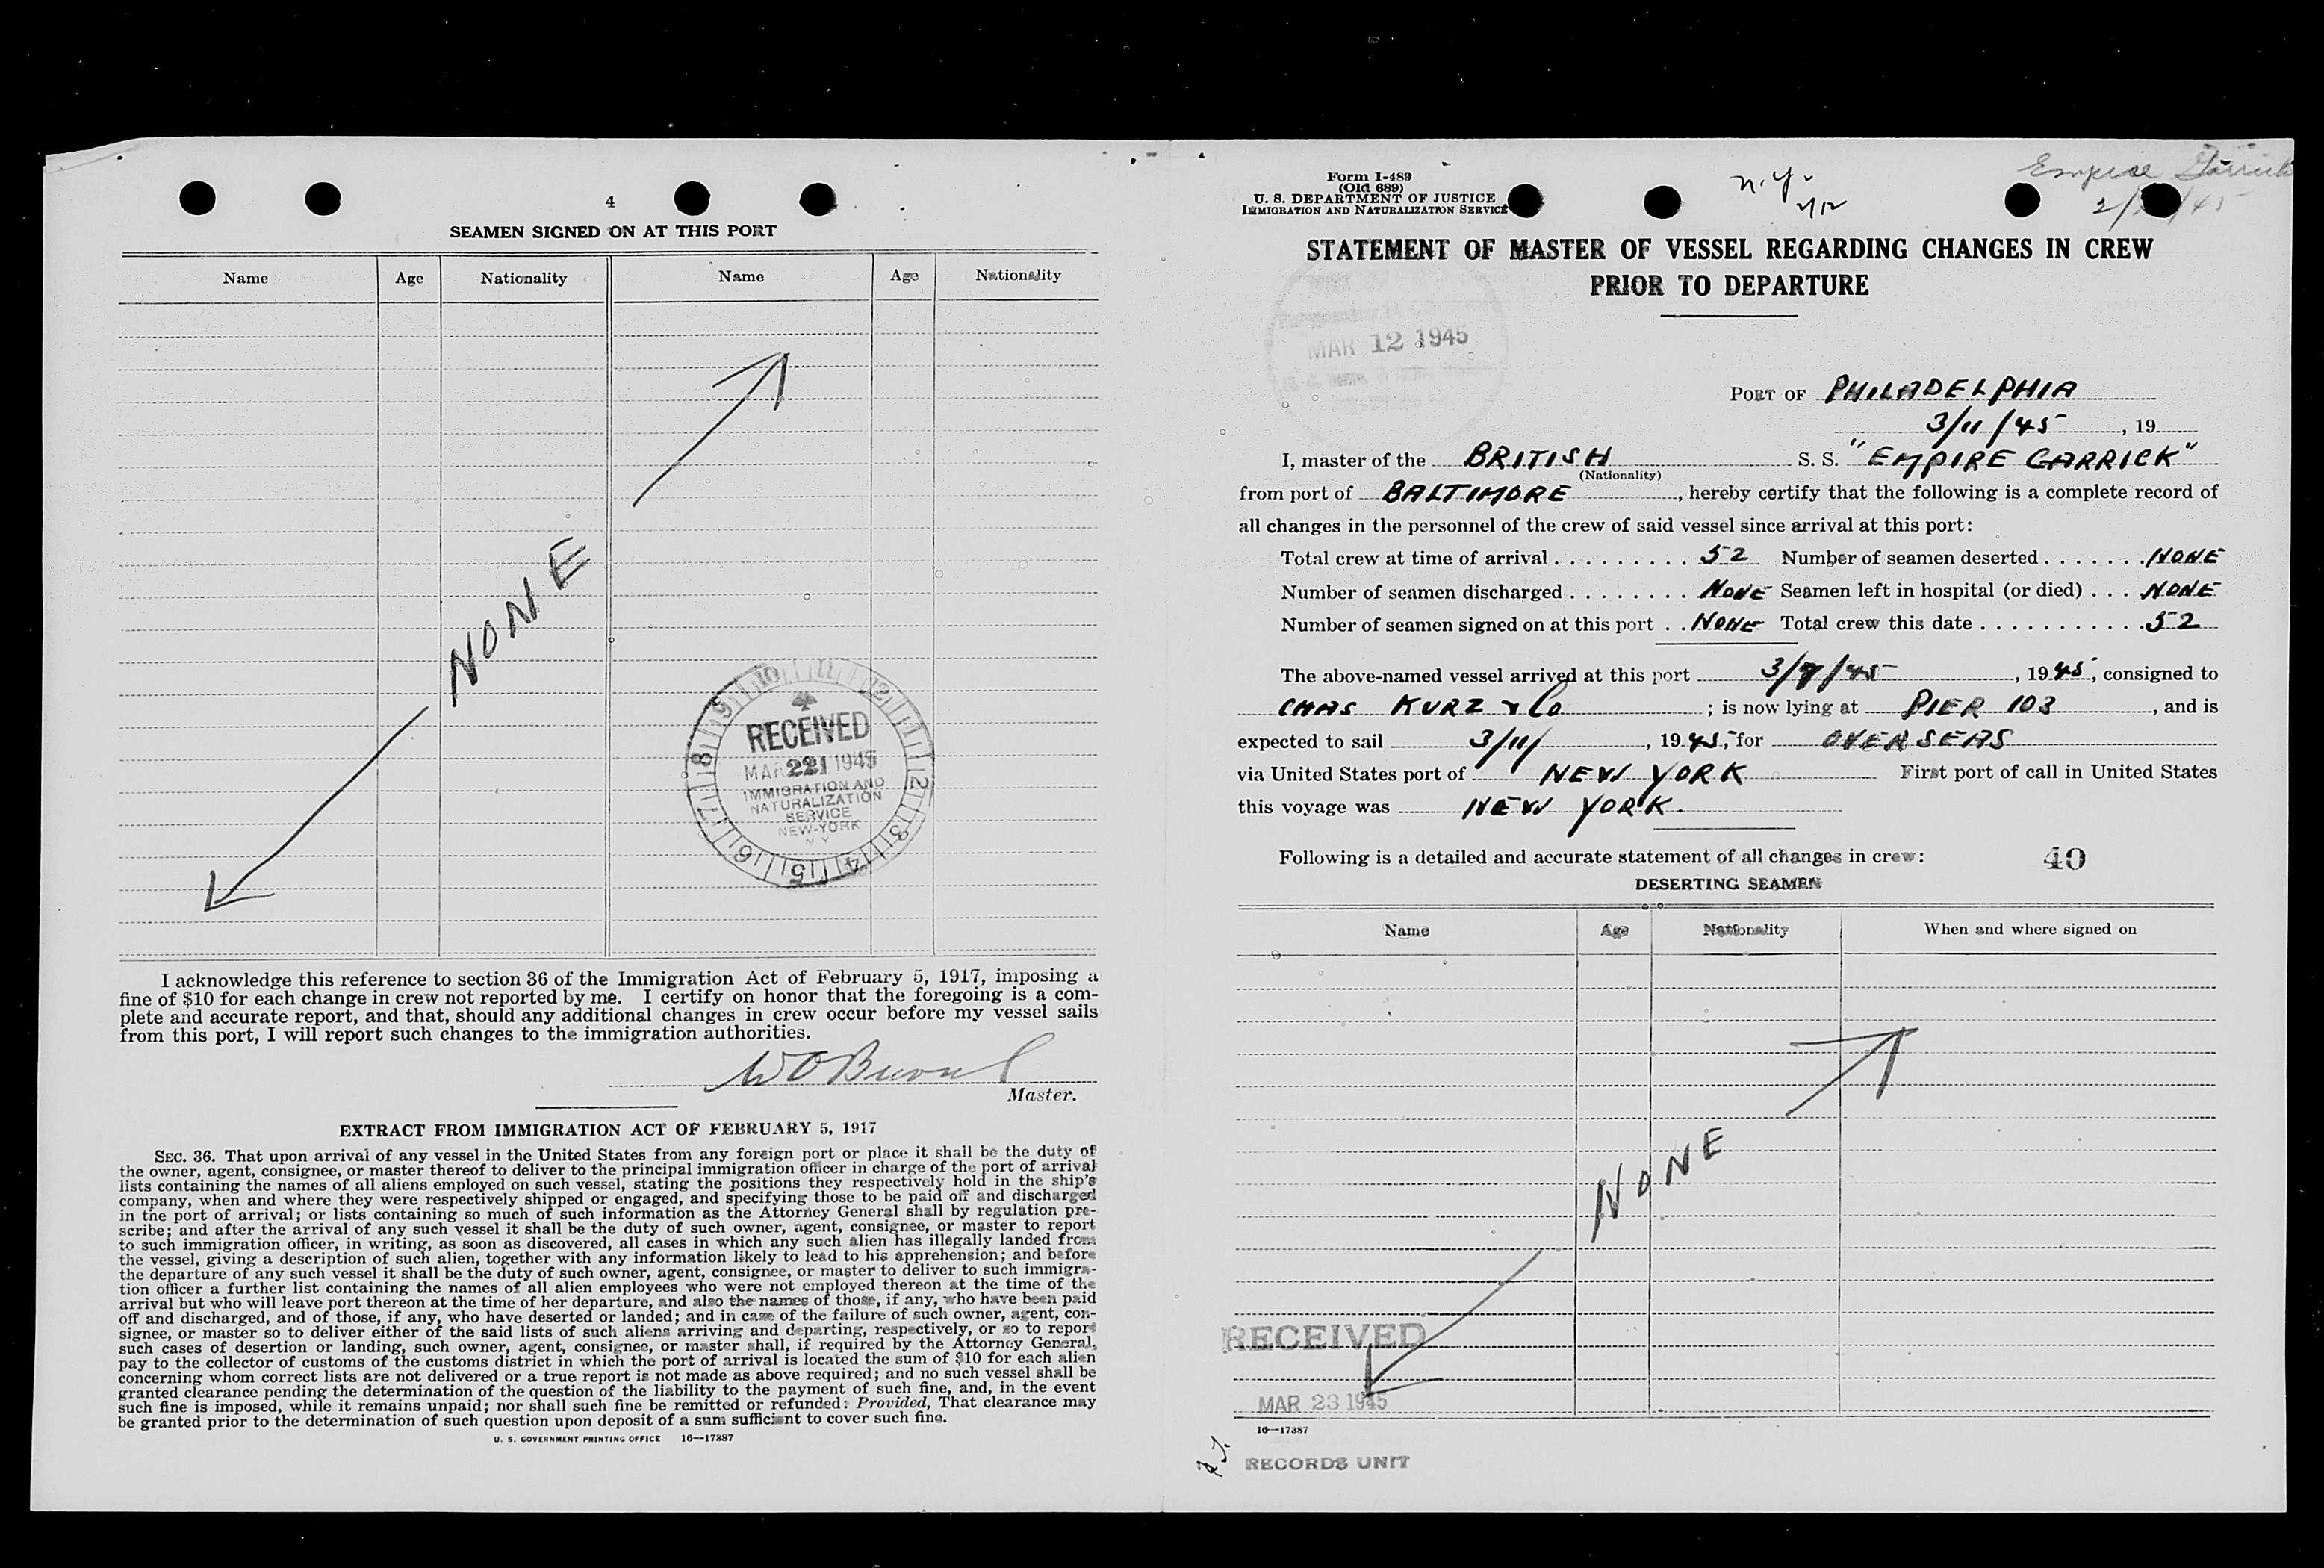 4
SEAMEN SIGNED ON AT THIS PORT
Name Age Nationality Name Age Nationality
NONE
RECEIVED
MAR 221 1945
IMMIGRATION AND
NATURALIZATION
SERVICE
NEW-YORK
N Y
I acknowledge this reference to section 36 of the Immigration Act of February 5, 1917, imposing a
fine of $10 for each change in crew not reported by me. I certify on honor that the foregoing is a com-
plete and accurate report, and that, should any additional changes in crew occur before my vessel sails
from this port, I will report such changes to the immigration authorities.
Master.
EXTRACT FROM IMMIGRATION ACT OF FEBRUARY 5, 1917
SEC. 36. That upon arrival of any vessel in the United States from any foreign port or place it shall be the duty of
the owner, agent, consignee, or master thereof to deliver to the principal immigration officer in charge of the port of arrival
lists containing the names of all aliens employed on such vessel, stating the positions they respectively hold in the ship's
company, when and where they were respectively shipped or engaged, and specifying those to be paid off and discharged
in the port of arrival; or lists containing so much of such information as the Attorney General shall by regulation pre-
scribe; and after the arrival of any such vessel it shall be the duty of such owner, agent, consignee, or master to report
to such immigration officer, in writing, as soon as discovered, all cases in which any such alien has illegally landed from
the vessel, giving a description of such alien, together with any information likely to lead to his apprehension; and before
the departure of any such vessel it shall be the duty of such owner, agent, consignee, or master to deliver to such immigra-
tion officer a further list containing the names of all alien employees who were not employed thereon at the time of the
arrival but who will leave port thereon at the time of her departure, and also the names of those, if any, who have been paid
off and discharged, and of those, if any, who have deserted or landed; and in case of the failure of such owner, agent, con-
signee, or master so to deliver either of the said lists of such aliens arriving and departing, respectively, or so to report
such cases of desertion or landing, such owner, agent, consignee, or master shall, if required by the Attorney General,
pay to the collector of customs of the customs district in which the port of arrival is located the sum of $10 for each alien
concerning whom correct lists are not delivered or a true report is not made as above required; and no such vessel shall be
granted clearance pending the determination of the question of the liability to the payment of such fine, and, in the event
such fine is imposed, while it remains unpaid; nor shall such fine be remitted or refunded: Provided, That clearance may
be granted prior to the determination of such question upon deposit of a sum sufficient to cover such fine.
U. S. GOVERNMENT PRINTING OFFICE 16—17387
Form I-489
(Old 689)
U. S. DEPARTMENT OF JUSTICE
IMMIGRATION AND NATURALIZATION SERVICE
n.y.
2/12
Empire Garrick
STATEMENT OF MASTER OF VESSEL REGARDING CHANGES IN CREW
PRIOR TO DEPARTURE
MAR 12 1945
PORT OF PHILADELPHIA
3/11/45, 19
I, master of the BRITISH S. S. "EMPIRE GARRICK"
(Nationality)
from port of BALTIMORE, hereby certify that the following is a complete record of
all changes in the personnel of the crew of said vessel since arrival at this port:
Total crew at time of arrival 52 Number of seamen deserted NONE
Number of seamen discharged NONE Seamen left in hospital (or died) NONE
Number of seamen signed on at this port NONE Total crew this date 52
The above-named vessel arrived at this port 3/7/45, 1945, consigned to
CHAS KURZ & Co; is now lying at PIER 103, and is
expected to sail 3/11/, 1945, for OVERSEAS
via United States port of NEW YORK First port of call in United States
this voyage was NEW YORK.
Following is a detailed and accurate statement of all changes in crew: 40
DESERTING SEAMEN
Name Age Nationality When and where signed on
NONE
RECEIVED
MAR 23 1945
16—17387
RECORDS UNIT